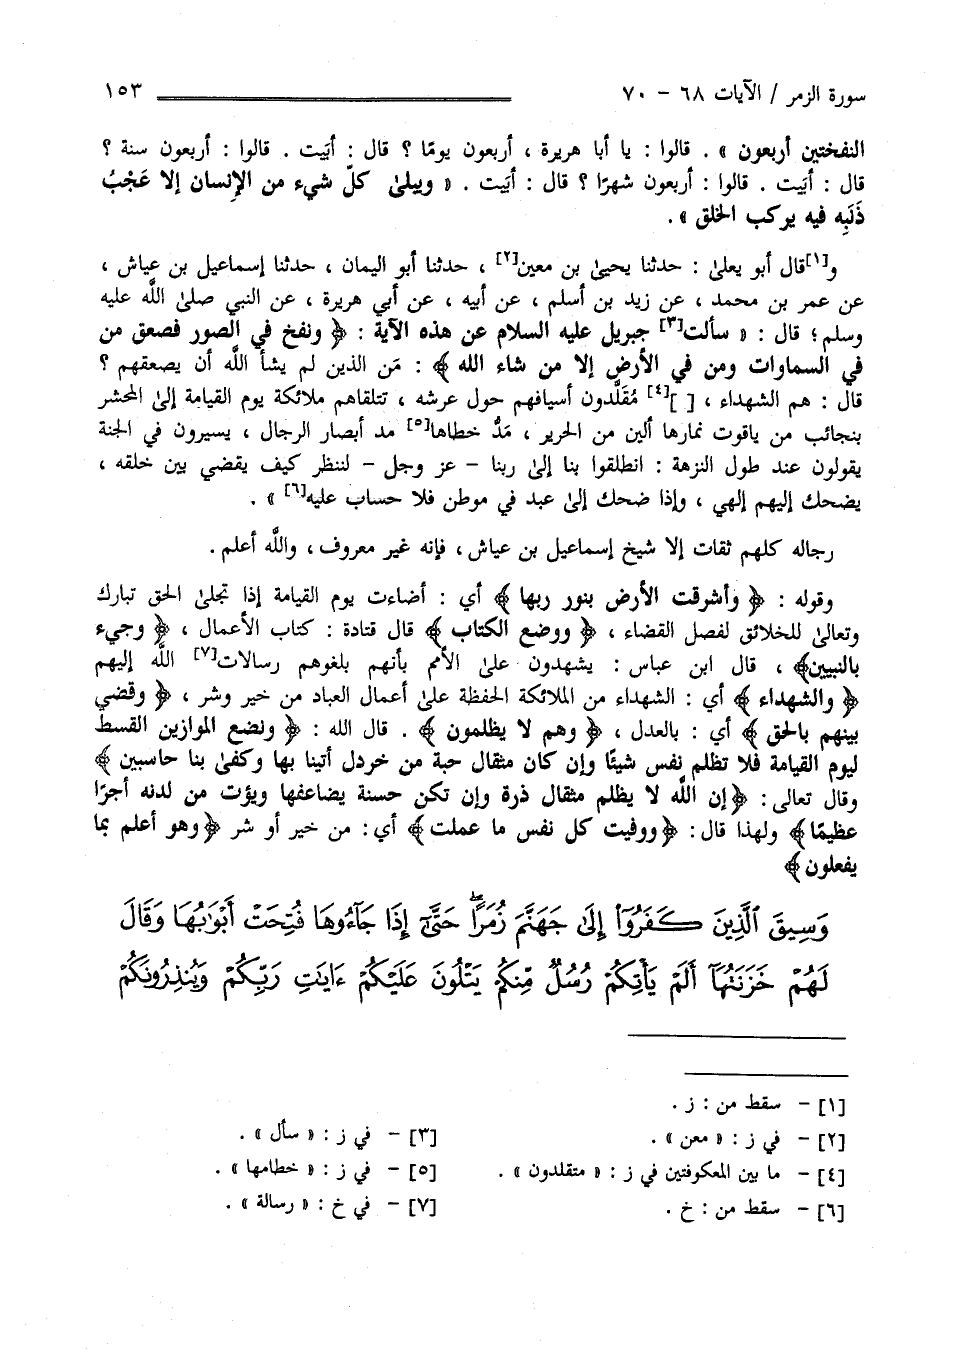 سورة الزمر / الآيات ٦٨ - ٧٠ ١٥٣
النفختين أربعون » . قالوا : يا أبا هريرة ، أربعون يومًا ؟ قال : أبَيت . قالوا : أربعون سنة ؟
قال : أبَيت . قالوا : أربعون شهرًا ؟ قال : أبَيت . « ويبلىٰ كلّ شيء من الإِنسان إلا عَجْبُ
ذَنَبِه فيه يركب الخلق » .
و[١]قال أبو يعلىٰ : حدثنا يحيىٰ بن معين[٢] ، حدثنا أبو اليمان ، حدثنا إسماعيل بن عياش ،
عن عمر بن محمد ، عن زيد بن أسلم ، عن أبيه ، عن أبي هريرة ، عن النبي صلىٰ اللَّه عليه
وسلم؛ قال : « سألت[٣] جبريل عليه السلام عن هذه الآية : ﴿ ونفخ في الصور فصعق من
في السماوات ومن في الأرض إلا من شاء الله ﴾ : مَن الذين لم يشأ اللَّه أن يصعقهم ؟
قال : هم الشهداء ، [ ][٤] مُقَلَّدون أسيافهم حول عرشه ، تتلقاهم ملائكة يوم القيامة إلىٰ المحشر
بنجائب من ياقوت نمارها ألين من الحرير ، مَدُّ خطاها[٥] مد أبصار الرجال ، يسيرون في الجنة
يقولون عند طول النزهة : انطلقوا بنا إلىٰ ربنا - عز وجل - لننظر كيف يقضي بين خلقه ،
يضحك إليهم إلهي ، وإذا ضحك إلىٰ عبد في موطن فلا حساب عليه[٦] » .
رجاله كلهم ثقات إلا شيخ إسماعيل بن عياش ، فإنه غير معروف ، واللَّه أعلم .
وقوله : ﴿ وأشرقت الأرض بنور ربها ﴾ أي : أضاءت يوم القيامة إذا تجلىٰ الحق تبارك
وتعالىٰ للخلائق لفصل القضاء ، ﴿ ووضع الكتاب ﴾ قال قتادة : كتاب الأعمال ، ﴿ وجيء
بالنبيين﴾ ، قال ابن عباس : يشهدون علىٰ الأمم بأنهم بلغوهم رسالات[٧] اللَّه إليهم
﴿ والشهداء ﴾ أي : الشهداء من الملائكة الحفظة علىٰ أعمال العباد من خير وشر ، ﴿ وقضي
بينهم بالحق ﴾ أي : بالعدل ، ﴿ وهم لا يظلمون ﴾ . قال الله : ﴿ ونضع الموازين القسط
ليوم القيامة فلا تظلم نفس شيئًا وإن كان مثقال حبة من خردل أتينا بها وكفىٰ بنا حاسبين ﴾
وقال تعالى : ﴿إن اللَّه لا يظلم مثقال ذرة وإن تكن حسنة يضاعفها ويؤت من لدنه أجرًا
عظيمًا﴾ ولهذا قال: ﴿ووفيت كل نفس ما عملت﴾ أي: من خير أو شر ﴿وهو أعلم بما
يفعلون﴾
وَسِيقَ ٱلَّذِينَ كَفَرُوٓا۟ إِلَىٰ جَهَنَّمَ زُمَرًا ۖ حَتَّىٰٓ إِذَا جَآءُوهَا فُتِحَتْ أَبْوَٰبُهَا وَقَالَ
لَهُمْ خَزَنَتُهَآ أَلَمْ يَأْتِكُمْ رُسُلٌ مِّنكُمْ يَتْلُونَ عَلَيْكُمْ ءَايَٰتِ رَبِّكُمْ وَيُنذِرُونَكُمْ
[١] - سقط من : ز .
[٢] - في ز : « معن » . [٣] - في ز : « سأل » .
[٤] - ما بين المعكوفتين في ز : « متقلدون » . [٥] - في ز : « خطامها » .
[٦] - سقط من : خ . [٧] - في خ : « رسالة » .